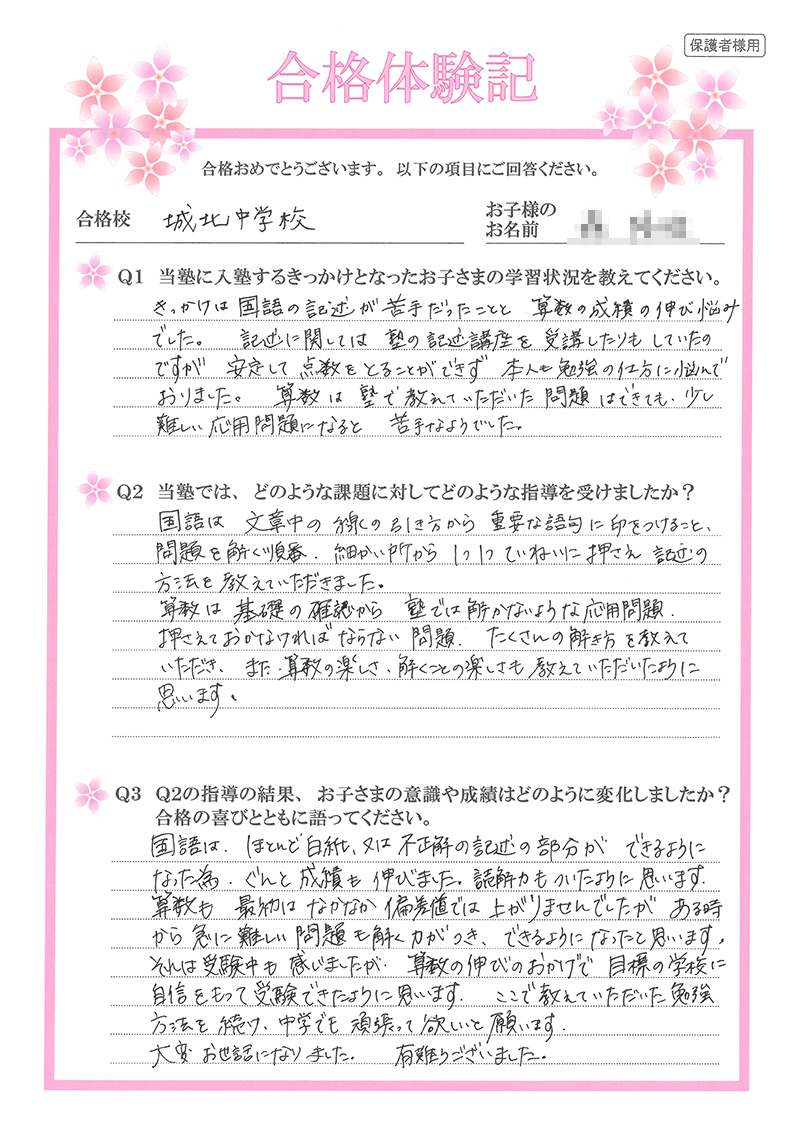 保護者様用
合格体験記
合格おめでとうございます。以下の項目にご回答ください。
合格校 城北中学校
お子様の
お名前
Q1 当塾に入塾するきっかけとなったお子さまの学習状況を教えてください。
きっかけは国語の記述が苦手だったことと 算数の成績の伸び悩み
でした。 記述に関しては塾の記述講座を受講したりもしていたの
ですが 安定して点数をとることができず 本人も勉強の仕方に悩んで
おりました。 算数は塾で教えていただいた問題はできても、少し
難しい応用問題になると 苦手なようでした。
Q2 当塾では、どのような課題に対してどのような指導を受けましたか?
国語は 文章中の線の引き方から 重要な語句に印をつけること、
問題を解く順番、細かい所から1つ1つていねいに押さえ 記述の
方法を教えていただきました。
算数は基礎の確認から 塾では解かないような応用問題、
押さえておかなければならない問題、たくさんの解き方を教えて
いただき、また、算数の楽しさ、解くことの楽しさも教えていただいたように
思います。
Q3 Q2の指導の結果、お子さまの意識や成績はどのように変化しましたか?
合格の喜びとともに語ってください。
国語は、ほとんど白紙、又は不正解の記述の部分が できるように
なった為、ぐんと成績も伸びました。読解力もついたように思います。
算数も 最初はなかなか偏差値では上がりませんでしたが ある時
から急に難しい問題も解く力がつき、できるようになったと思います。
それは受験中も感じましたが、算数の伸びのおかげで目標の学校に
自信をもって受験できたように思います。 ここで教えていただいた勉強
方法を続け、中学でも頑張って欲しいと願います。
大変お世話になりました。 有難うございました。